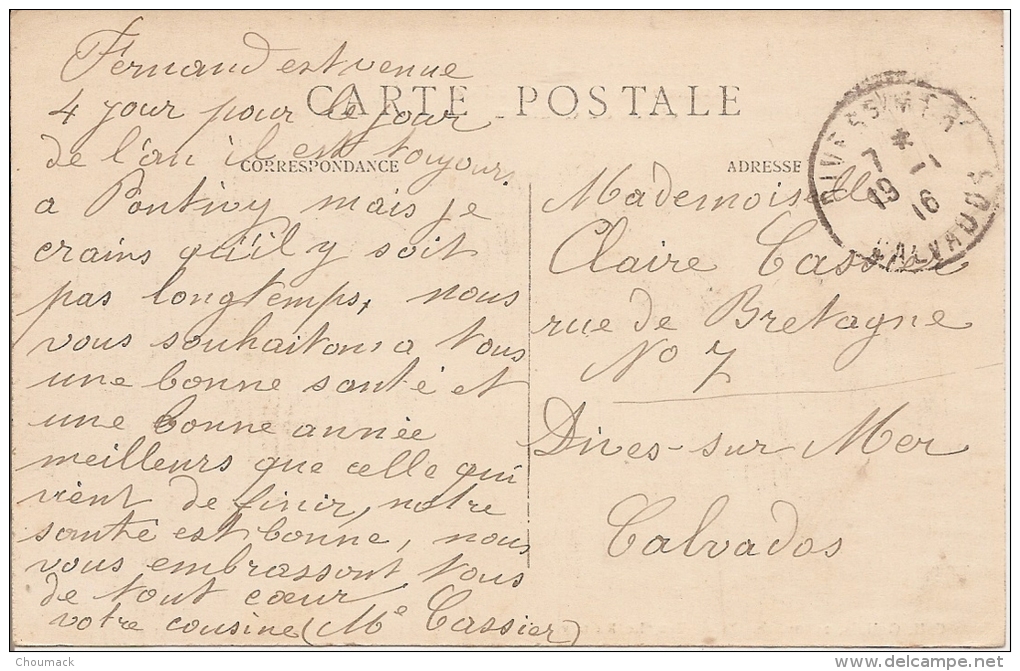 Fernand est venue
4 jour pour le jour
de l'an il est toujour
a Pontivy mais je
crains qu'il y soit
pas longtemps, nous
vous souhaitons a tous
une bonne santé et
une bonne année
meilleurs que celle qui
vient de finir, notre
santé est bonne, nous
vous embrassont tous
de tout cœur
votre cousine (Me Cassier)
CARTE POSTALE
CORRESPONDANCE
ADRESSE
Mademoiselle
Claire Cassier
rue de Bretagne
No 7
Dives-sur Mer
Calvados
DIVES S MER
*
7 -1
19 16
CALVADOS
Choumack
delcampe.net